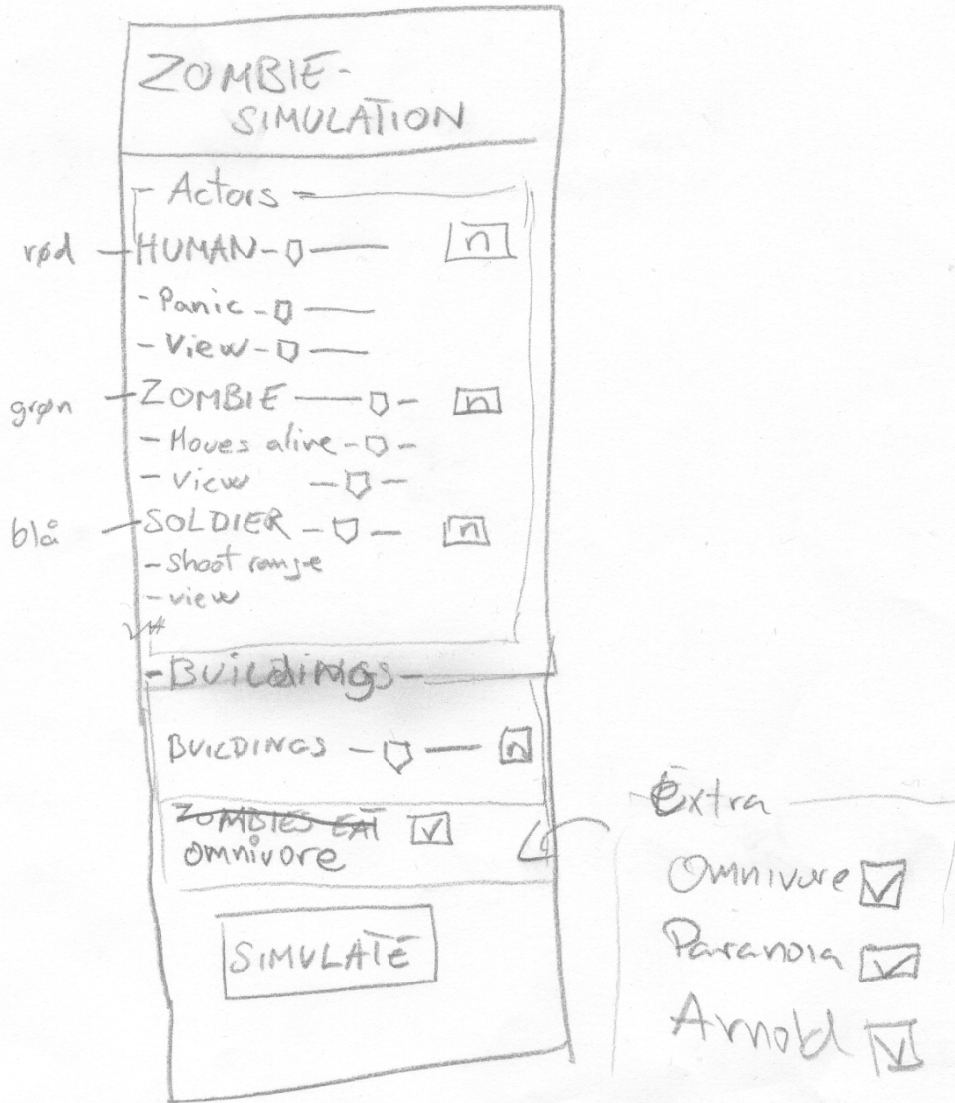 ZOMBIE-
SIMULATION
Actors
rød
HUMAN
n
- Panic
- View
grøn
ZOMBIE
n
- Moves alive
- View
blå
SOLDIER
n
- Shoot range
- view
Buildings
BUILDINGS
n
ZOMBIES EAT
omnivore
SIMULATE
Extra
Omnivore
Paranoia
Arnold